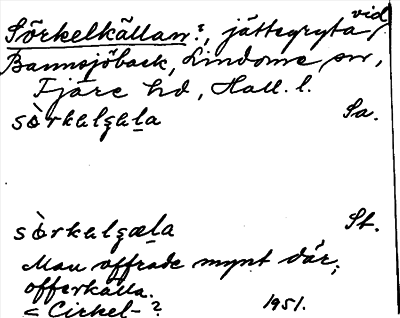 Sörkelkällan?, jättegryta vid
Bannsjöback, Lindome sn,
Fjäre hd, Hall. l.
sòrkalʂaʟa Sa.
sòrkalʂæʟa St.
Man offrade mynt där;
offerkälla.
< Cirkel-? 1951.